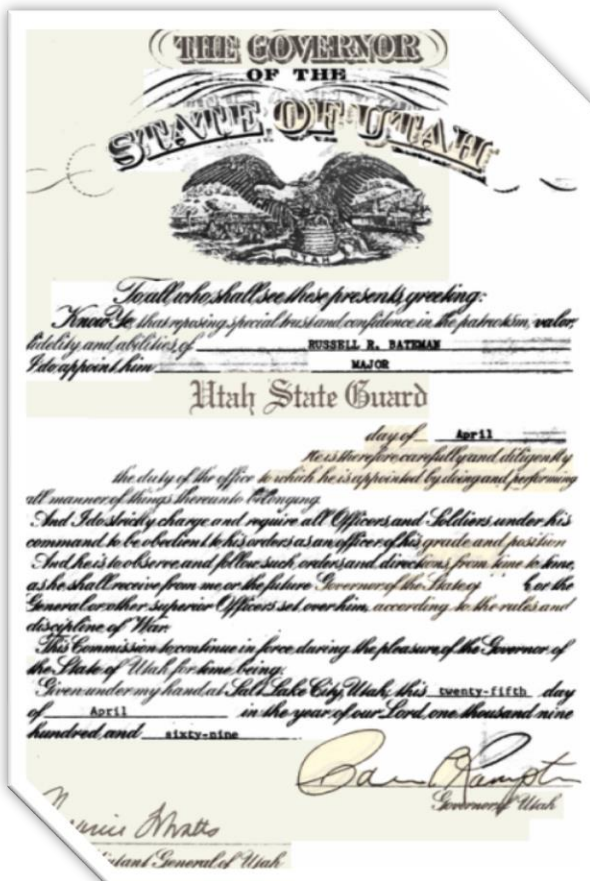 THE GOVERNOR
OF THE
STATE OF UTAH
UTAH
To all who shall see these presents, greeting:
Know Ye, that reposing special trust and confidence in the patriotism, valor,
fidelity and abilities, of RUSSELL R. BATEMAN
I do appoint him MAJOR
Utah State Guard
day of April
He is therefore, carefully and diligently
the duty of the office to which he is appointed by doing and performing
all manner of things thereunto belonging.
And I do strictly charge and require all Officers, and Soldiers, under his
command, to be obedient to his orders as an officer of his grade and position
And he is to observe and follow such, orders and directions, from time to time,
as he shall receive from me, or the future Governor of the State of or the
General or other superior Officers set over him, according to the rules and
discipline of War.
This Commission to continue in force during the pleasure of the Governor of
the State of Utah, for time being.
Given under my hand, at Salt Lake City, Utah, this twenty-fifth day
of April in the year of our Lord, one thousand nine
hundred, and sixty-nine
Governor of Utah
General of Utah